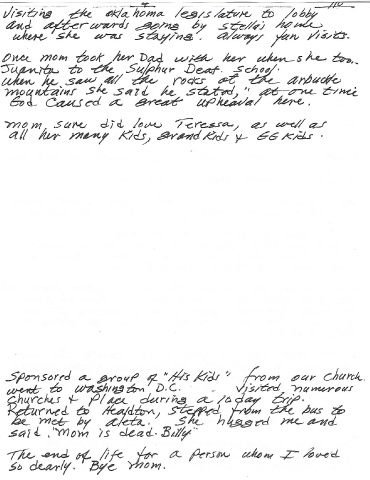 visiting the oklahoma legislature to lobby
and afterwards going by stella's home
where she was staying. always fun visits.
Once mom took her Dad with her when she too
Juanita to the Sulphur Deaf. school.
when he saw all the rocks at the arbuckle
mountains she said he stated, "at one time
God caused a great upheaval here.
mom, sure did love Teressa, as well as
all her many kids, grand kids & GG kids.
Sponsored a group of "His Kids" from our church
went to washington D.C. visited numerous
churches & place during a 10 day trip.
Returned to Healdton, stepped from the bus to
be met by aleta. She hugged me and
said. "Mom is dead. Billy"
The end of life for a person whom I loved
so dearly. Bye mom.